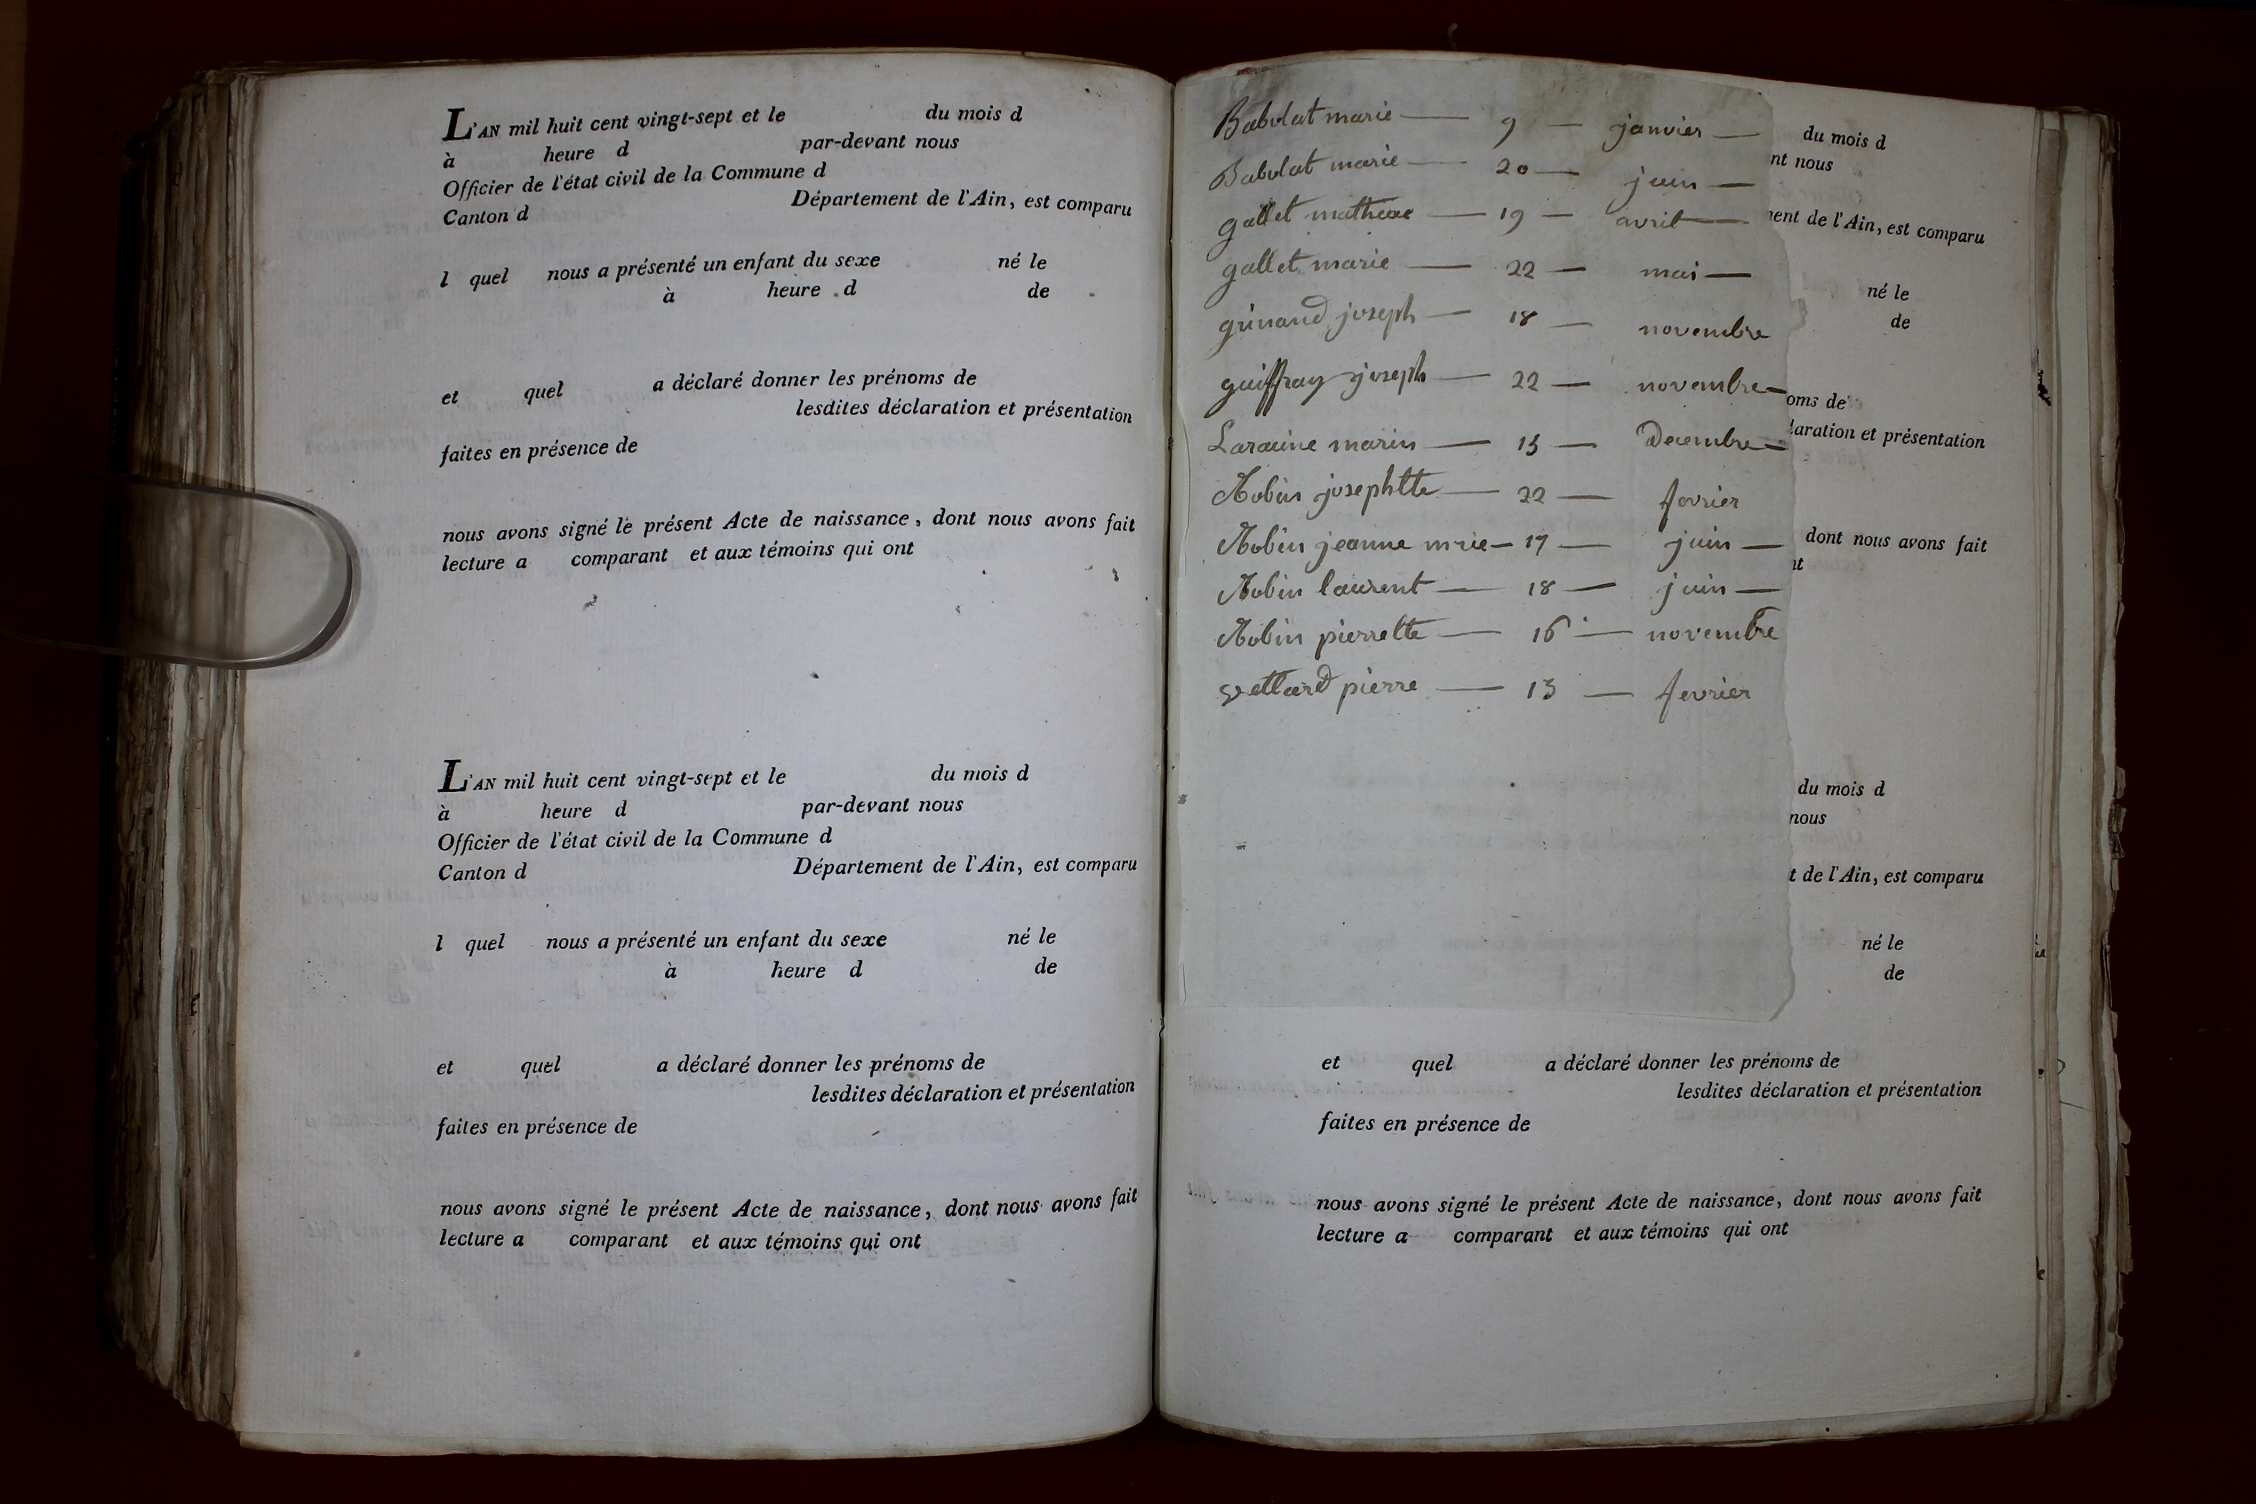 L'AN mil huit cent vingt-sept et le du mois d
à heure d par-devant nous
Officier de l'état civil de la Commune d
Canton d Département de l'Ain, est comparu
l quel nous a présenté un enfant du sexe né le
à heure d de
et quel a déclaré donner les prénoms de
lesdites déclaration et présentation
faites en présence de
nous avons signé le présent Acte de naissance, dont nous avons fait
lecture a comparant et aux témoins qui ont
L'AN mil huit cent vingt-sept et le du mois d
à heure d par-devant nous
Officier de l'état civil de la Commune d
Canton d Département de l'Ain, est comparu
l quel nous a présenté un enfant du sexe né le
à heure d de
et quel a déclaré donner les prénoms de
lesdites déclaration et présentation
faites en présence de
nous avons signé le présent Acte de naissance, dont nous avons fait
lecture a comparant et aux témoins qui ont
Babolat marie — 9 — janvier —
Babolat marie — 20 — juin —
gallet — 19 — avril —
gallet marie — 22 — mai —
joseph — 18 — novembre
guiffray joseph — 22 — novembre —
marin — 13 — Decembre —
Robin josephtte — 22 — fevrier
Robin jeanne mrie — 17 — juin —
Robin laurent — 18 — juin —
Robin pierrette — 16 — novembre
vettard pierre — 13 — fevrier
du mois d
nt nous
ment de l'Ain, est comparu
né le
de
oms de
laration et présentation
dont nous avons fait
nt
du mois d
nous
t de l'Ain, est comparu
né le
de
et quel a déclaré donner les prénoms de
lesdites déclaration et présentation
faites en présence de
nous avons signé le présent Acte de naissance, dont nous avons fait
lecture a comparant et aux témoins qui ont